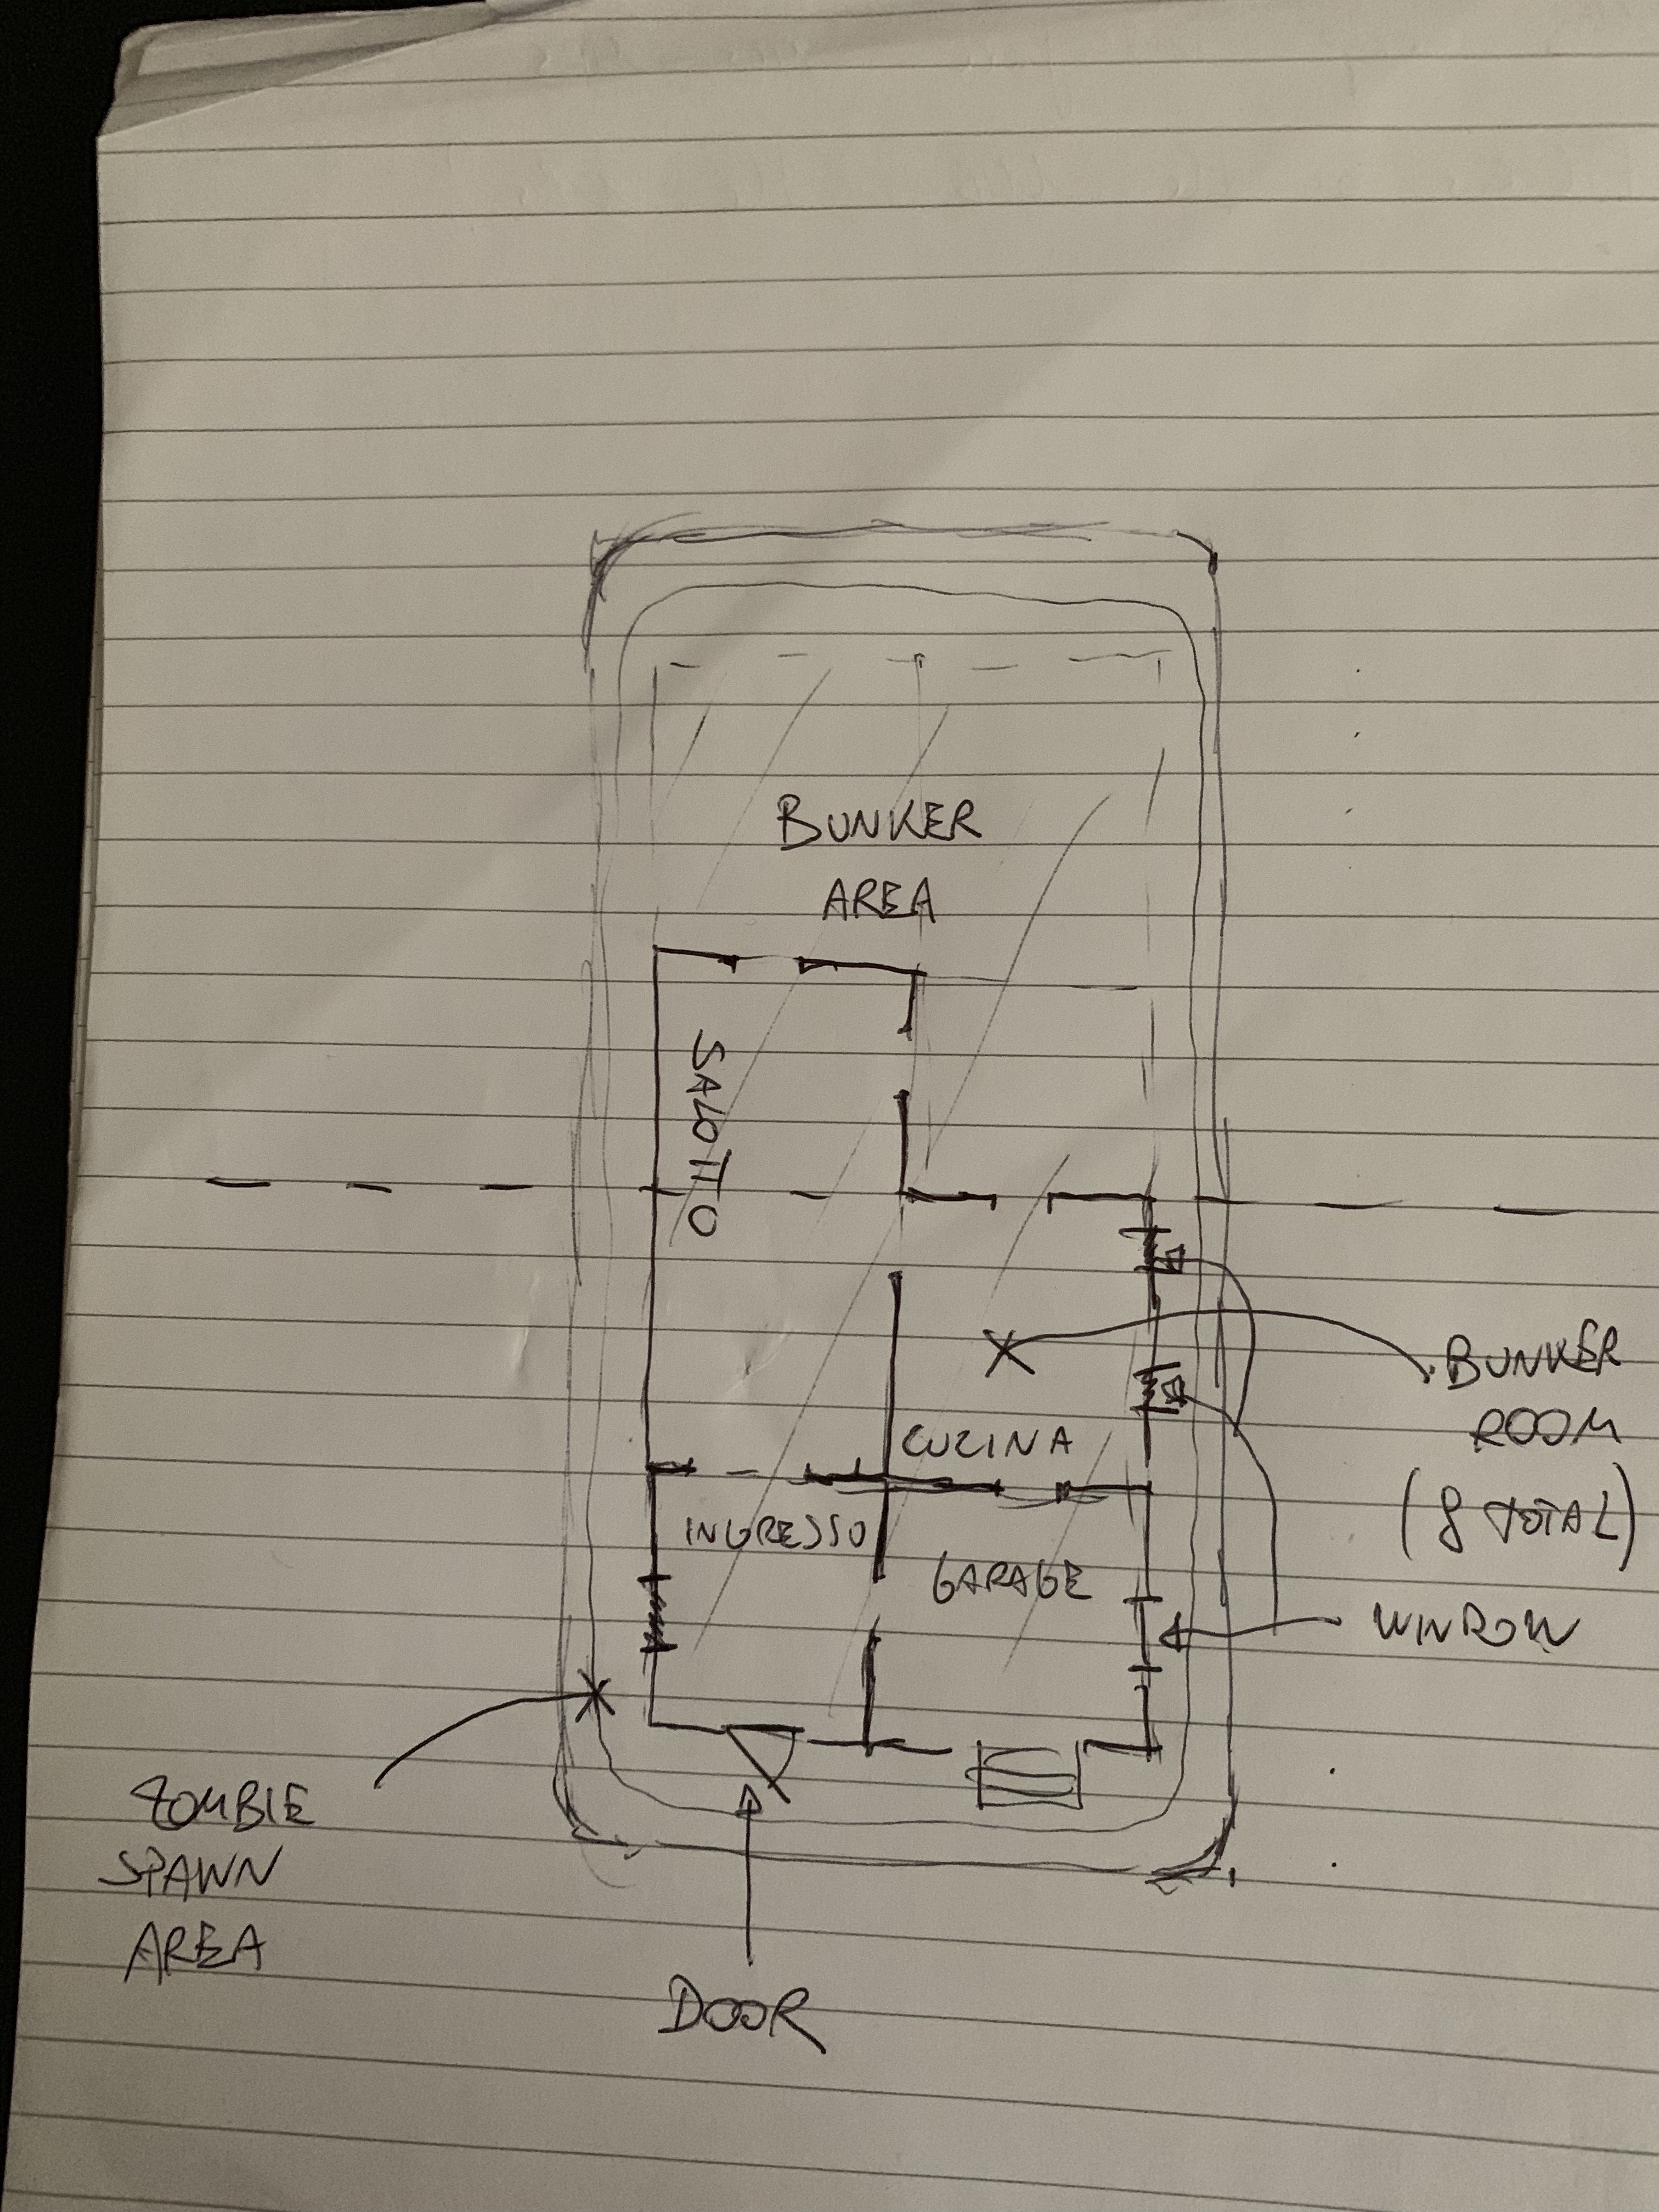 BUNKER
AREA
SALOTTO
BUNKER
ROOM
(8 TOTAL)
CUCINA
INGRESSO
GARAGE
WINDOW
ZOMBIE
SPAWN
AREA
DOOR